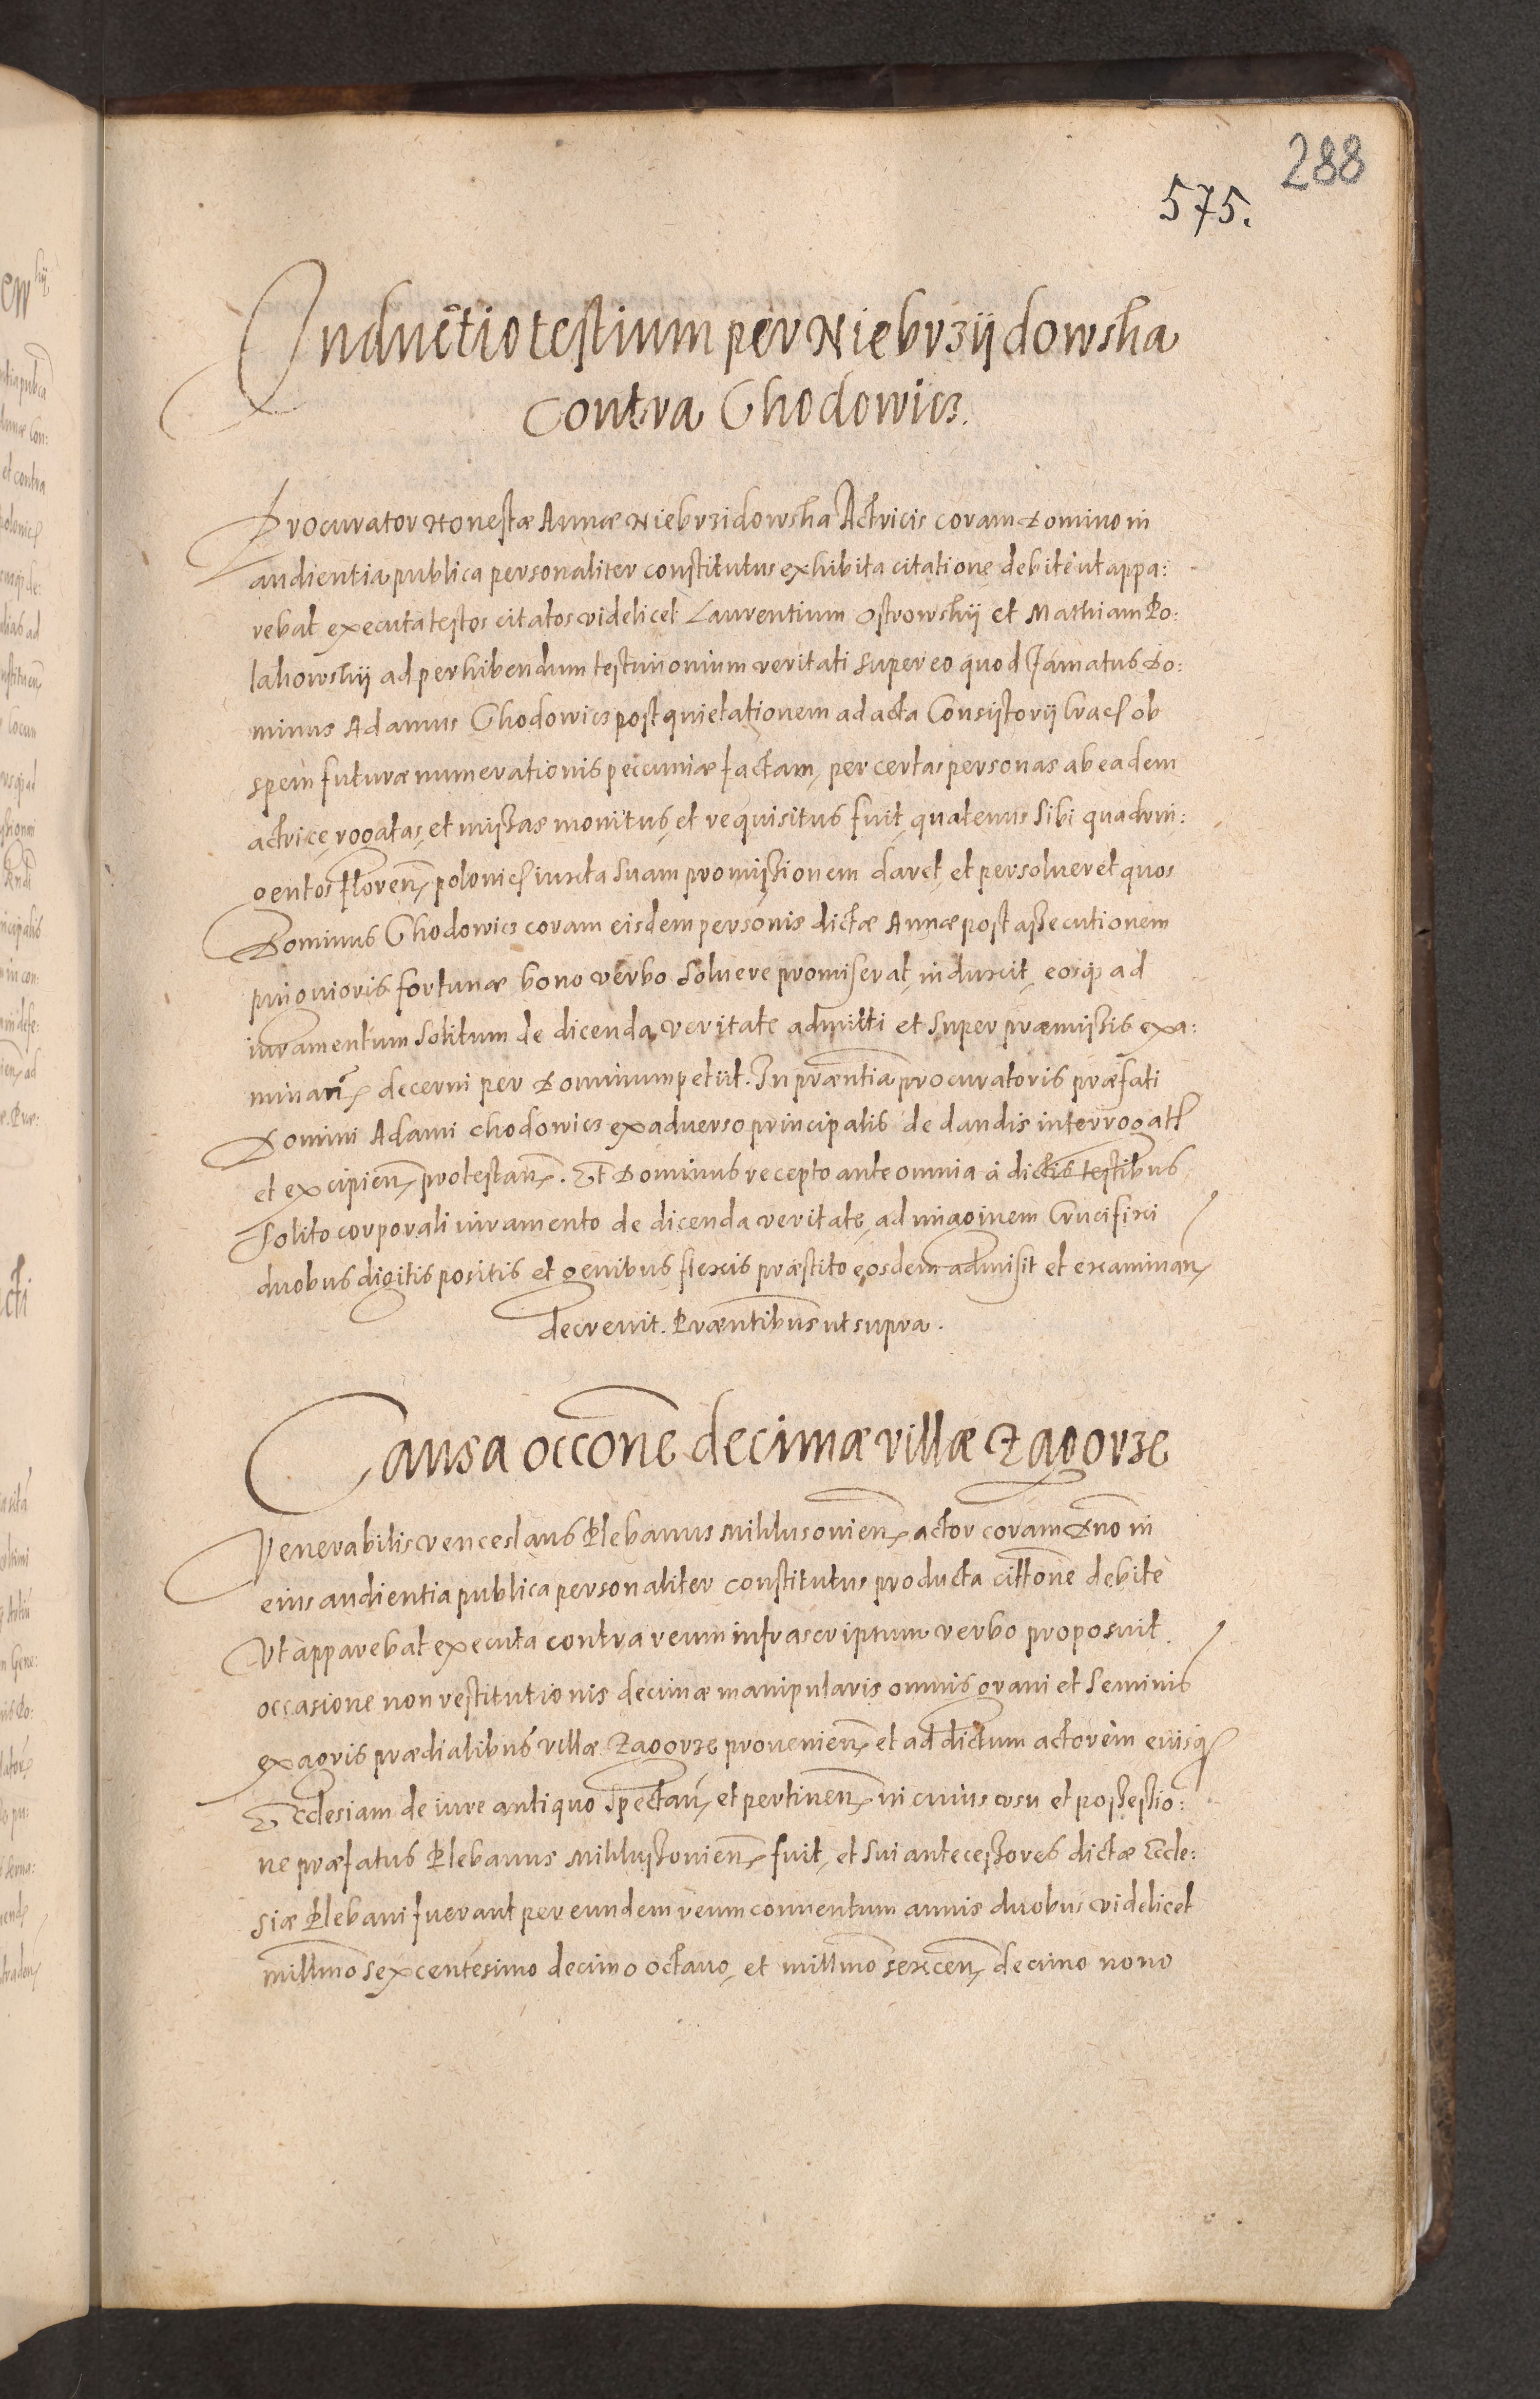 288
575.
Inductio testium per Niebrzijdowska
Contra Chodowicz.
Procurator Honestæ Annæ Niebrzidowska Actricis coram Domino in
audientia publica personaliter constitutus exhibita citatione debitè ut appa:
rebat executa testes citatos videlicet Laurentium Ostrowskij et Mathiam Po:
lakowskij ad perhibendum testimonium veritati super eo quod Famatus Do:
minus Adamus Chodowicz post quietationem ad acta Consistorij Crac ob
spem futuræ numerationis pecuniæ factam, per certas personas ab eadem
actrice rogatas, et missas monitus, et requisitus fuit, quatenus sibi quadrin:
gentos floren polonic iuxta suam promissionem daret, et persolueret quos
Dominus Chodowicz coram eisdem personis dictæ Annæ post assecutionem
pinguioris fortunæ bono verbo soluere promiserat, induxit, eosq ad
iuramentum solitum de dicenda veritate admitti et super præmissis exa:
minan decerni per Dominum petiit. In præntia procuratoris præfati
Domini Adami Chodowicz ex aduerso principalis de dandis interrogat
et excipien protestan. Et Dominus recepto ante omnia à dictis testibus
solito corporali iuramento de dicenda veritate, ad imaginem Crucifixi
duobus digitis positis et genibus flexis præstito eosdem admisit et examinan
decreuit. Præntibus ut supra.
Causa occone decimæ villæ Zagorze
Venerabilis Venceslaus Plebanus Miklusouien actor coram Dno in
eius audientia publica personaliter constitutus producta cittone debitè
Ut apparebat executa contra reum infrascriptum verbo proposuit.
occasione non restitutionis decimæ manipularis omnis grani et seminis
ex agris prædialibus villæ Zagorze prouenien et ad dictum actorem eiusq
Ecclesiam de iure antiquo spectan et pertinen in cuius usu et possessio:
ne præfatus Plebanus Miklussouien fuit, et sui antecessores dictæ Eccle:
siæ Plebani fuerant per eundem reum conuentum annis duobus videlicet
millmo sexcentesimo decimo octauo, et millmo sexcen decimo nono